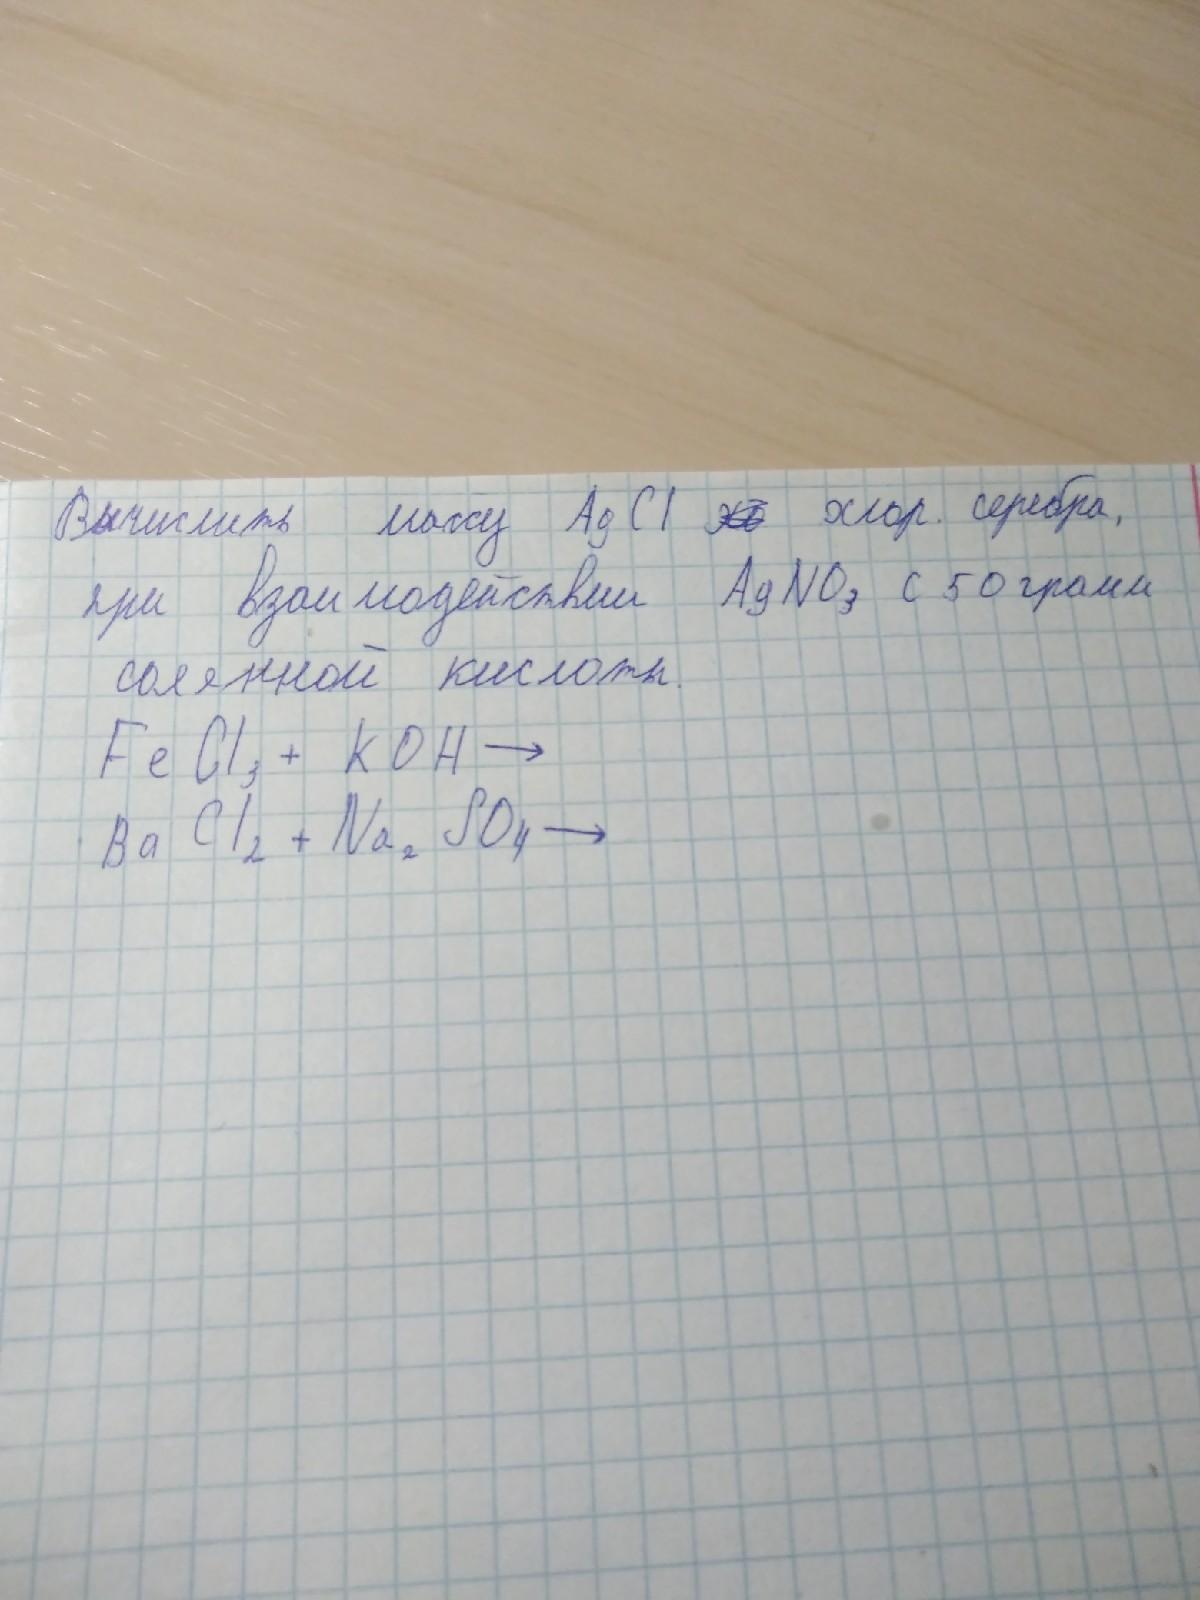 Вычислить массу AgCl хлор. серебра,
при взаимодействии AgNO₃ с 50 грамм
солянной кислоты.
FeCl₃ + KOH →
BaCl₂ + Na₂SO₄ →